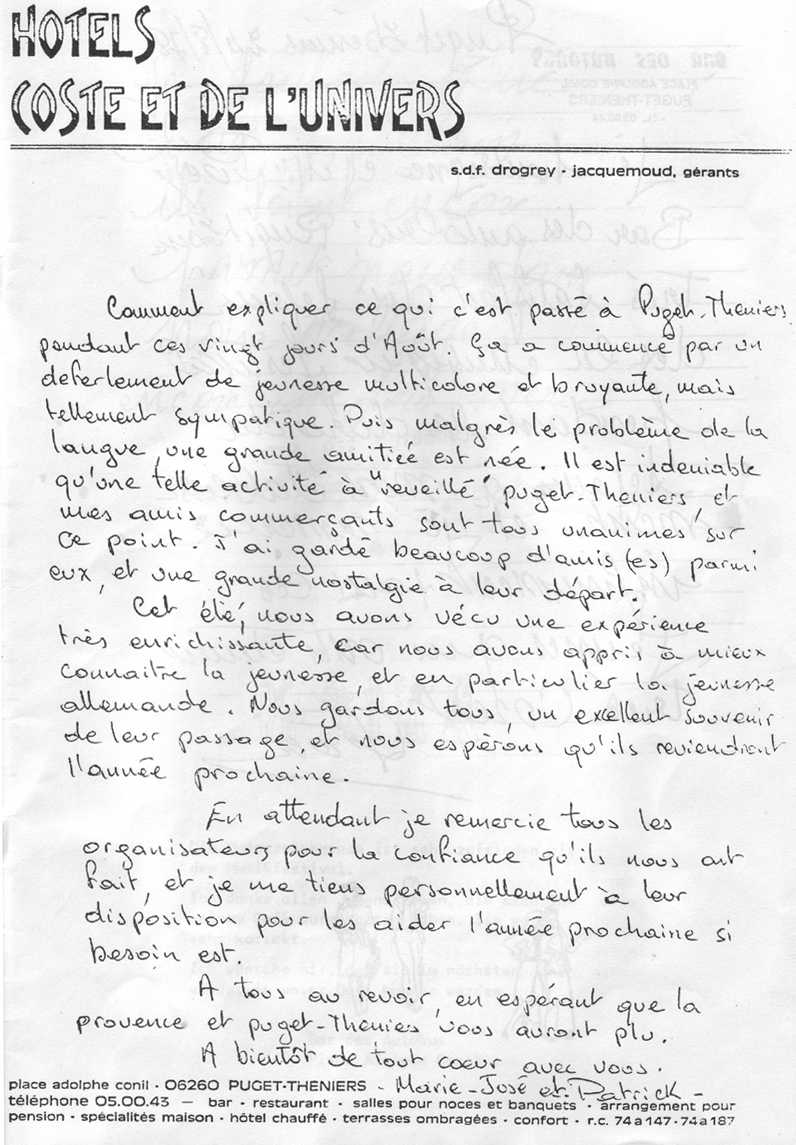 HOTELS
COSTE ET DE L'UNIVERS
s.d.f. drogrey - jacquemoud, gérants
Comment expliquer ce qui c'est passé à Puget-Theniers
pendant ces vingt jours d'Août. Ça a commencé par un
deferlement de jeunesse multicolore et bruyante, mais
tellement sympatique. Puis malgrès le problème de la
langue, une grande amitiée est née. Il est indeniable
qu'une telle activité à "reveillé" puget-Theniers, et
mes amis commerçants sont tous unanimes sur
ce point. J'ai gardé beaucoup d'amis (es) parmi
eux, et une grande nostalgie à leur départ.
Cet été, nous avons vécu une expérience
très enrichissante, car nous avons appris à mieux
connaitre la jeunesse, et en particulier la jeunesse
allemande. Nous gardons tous, un excellent souvenir
de leur passage, et nous espèrons qu'ils reviendront
l'année prochaine.
En attendant je remercie tous les
organisateurs pour la confiance qu'ils nous ont
fait, et je me tiens personnellement à leur
disposition pour les aider l'année prochaine si
besoin est.
A tous au revoir, en espérant que la
provence et puget-Theniers vous auront plu.
A bientôt de tout coeur avec vous.
Marie-José et Patrick -
place adolphe conil - 06260 PUGET-THENIERS
téléphone 05.00.43 — bar - restaurant - salles pour noces et banquets - arrangement pour
pension - spécialités maison - hôtel chauffé - terrasses ombragées - confort - r.c. 74a147-74a187